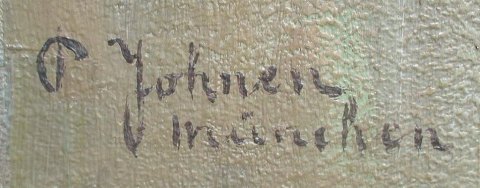 P Johnen
München